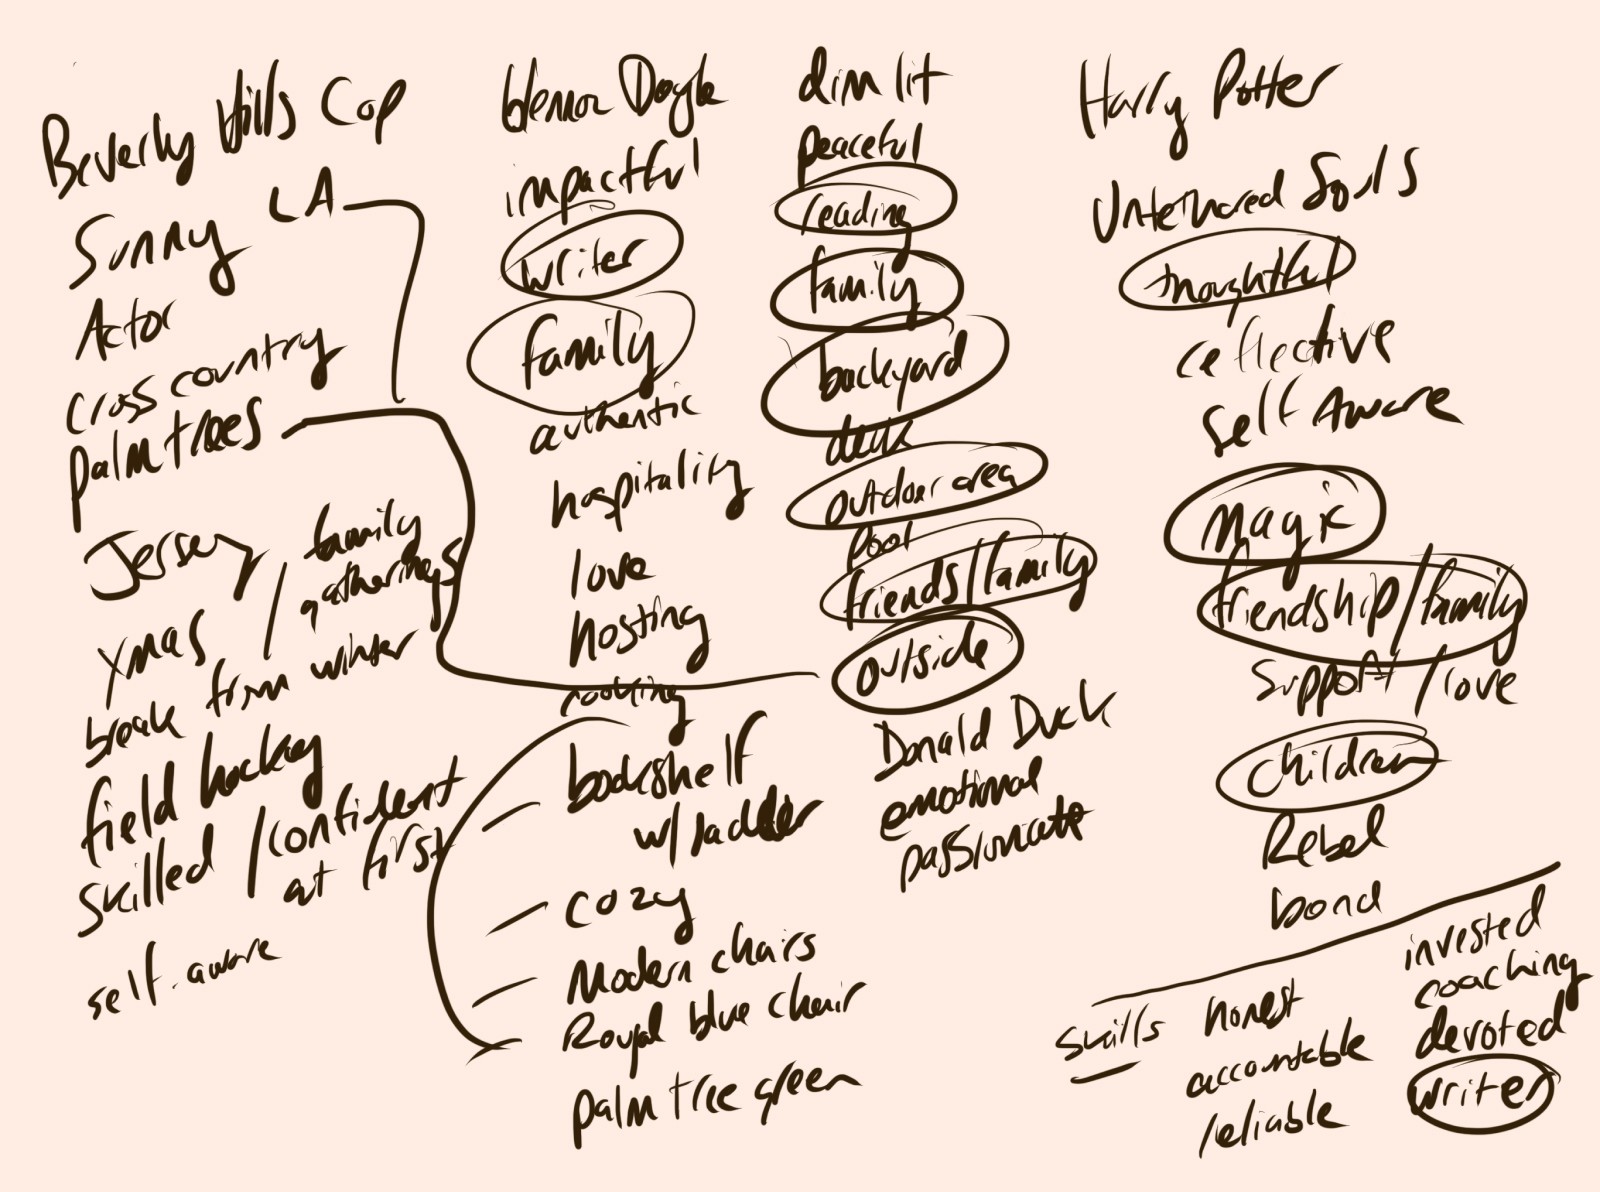 Beverly Hills Cop
Sunny LA
Actor
cross country
palm trees
Jersey / family gatherings
xmas
break from winter
field hockey
skilled / confident at first
self-aware
Doyle
impactful
writer
family
authentic
hospitality
love
hosting
cooking
bookshelf
w/ ladder
cozy
Modern chairs
Royal blue chair
palm tree green
dim lit
peaceful
reading
family
backyard
deck
outdoor area
pool
friends/family
outside
Donald Duck
emotional
passionate
Harry Potter
Untethered Souls
thoughtful
reflective
Self Aware
Magic
friendship/family
support/love
children
Rebel
bond
skills
honest
accountable
reliable
invested
coaching
devoted
writer